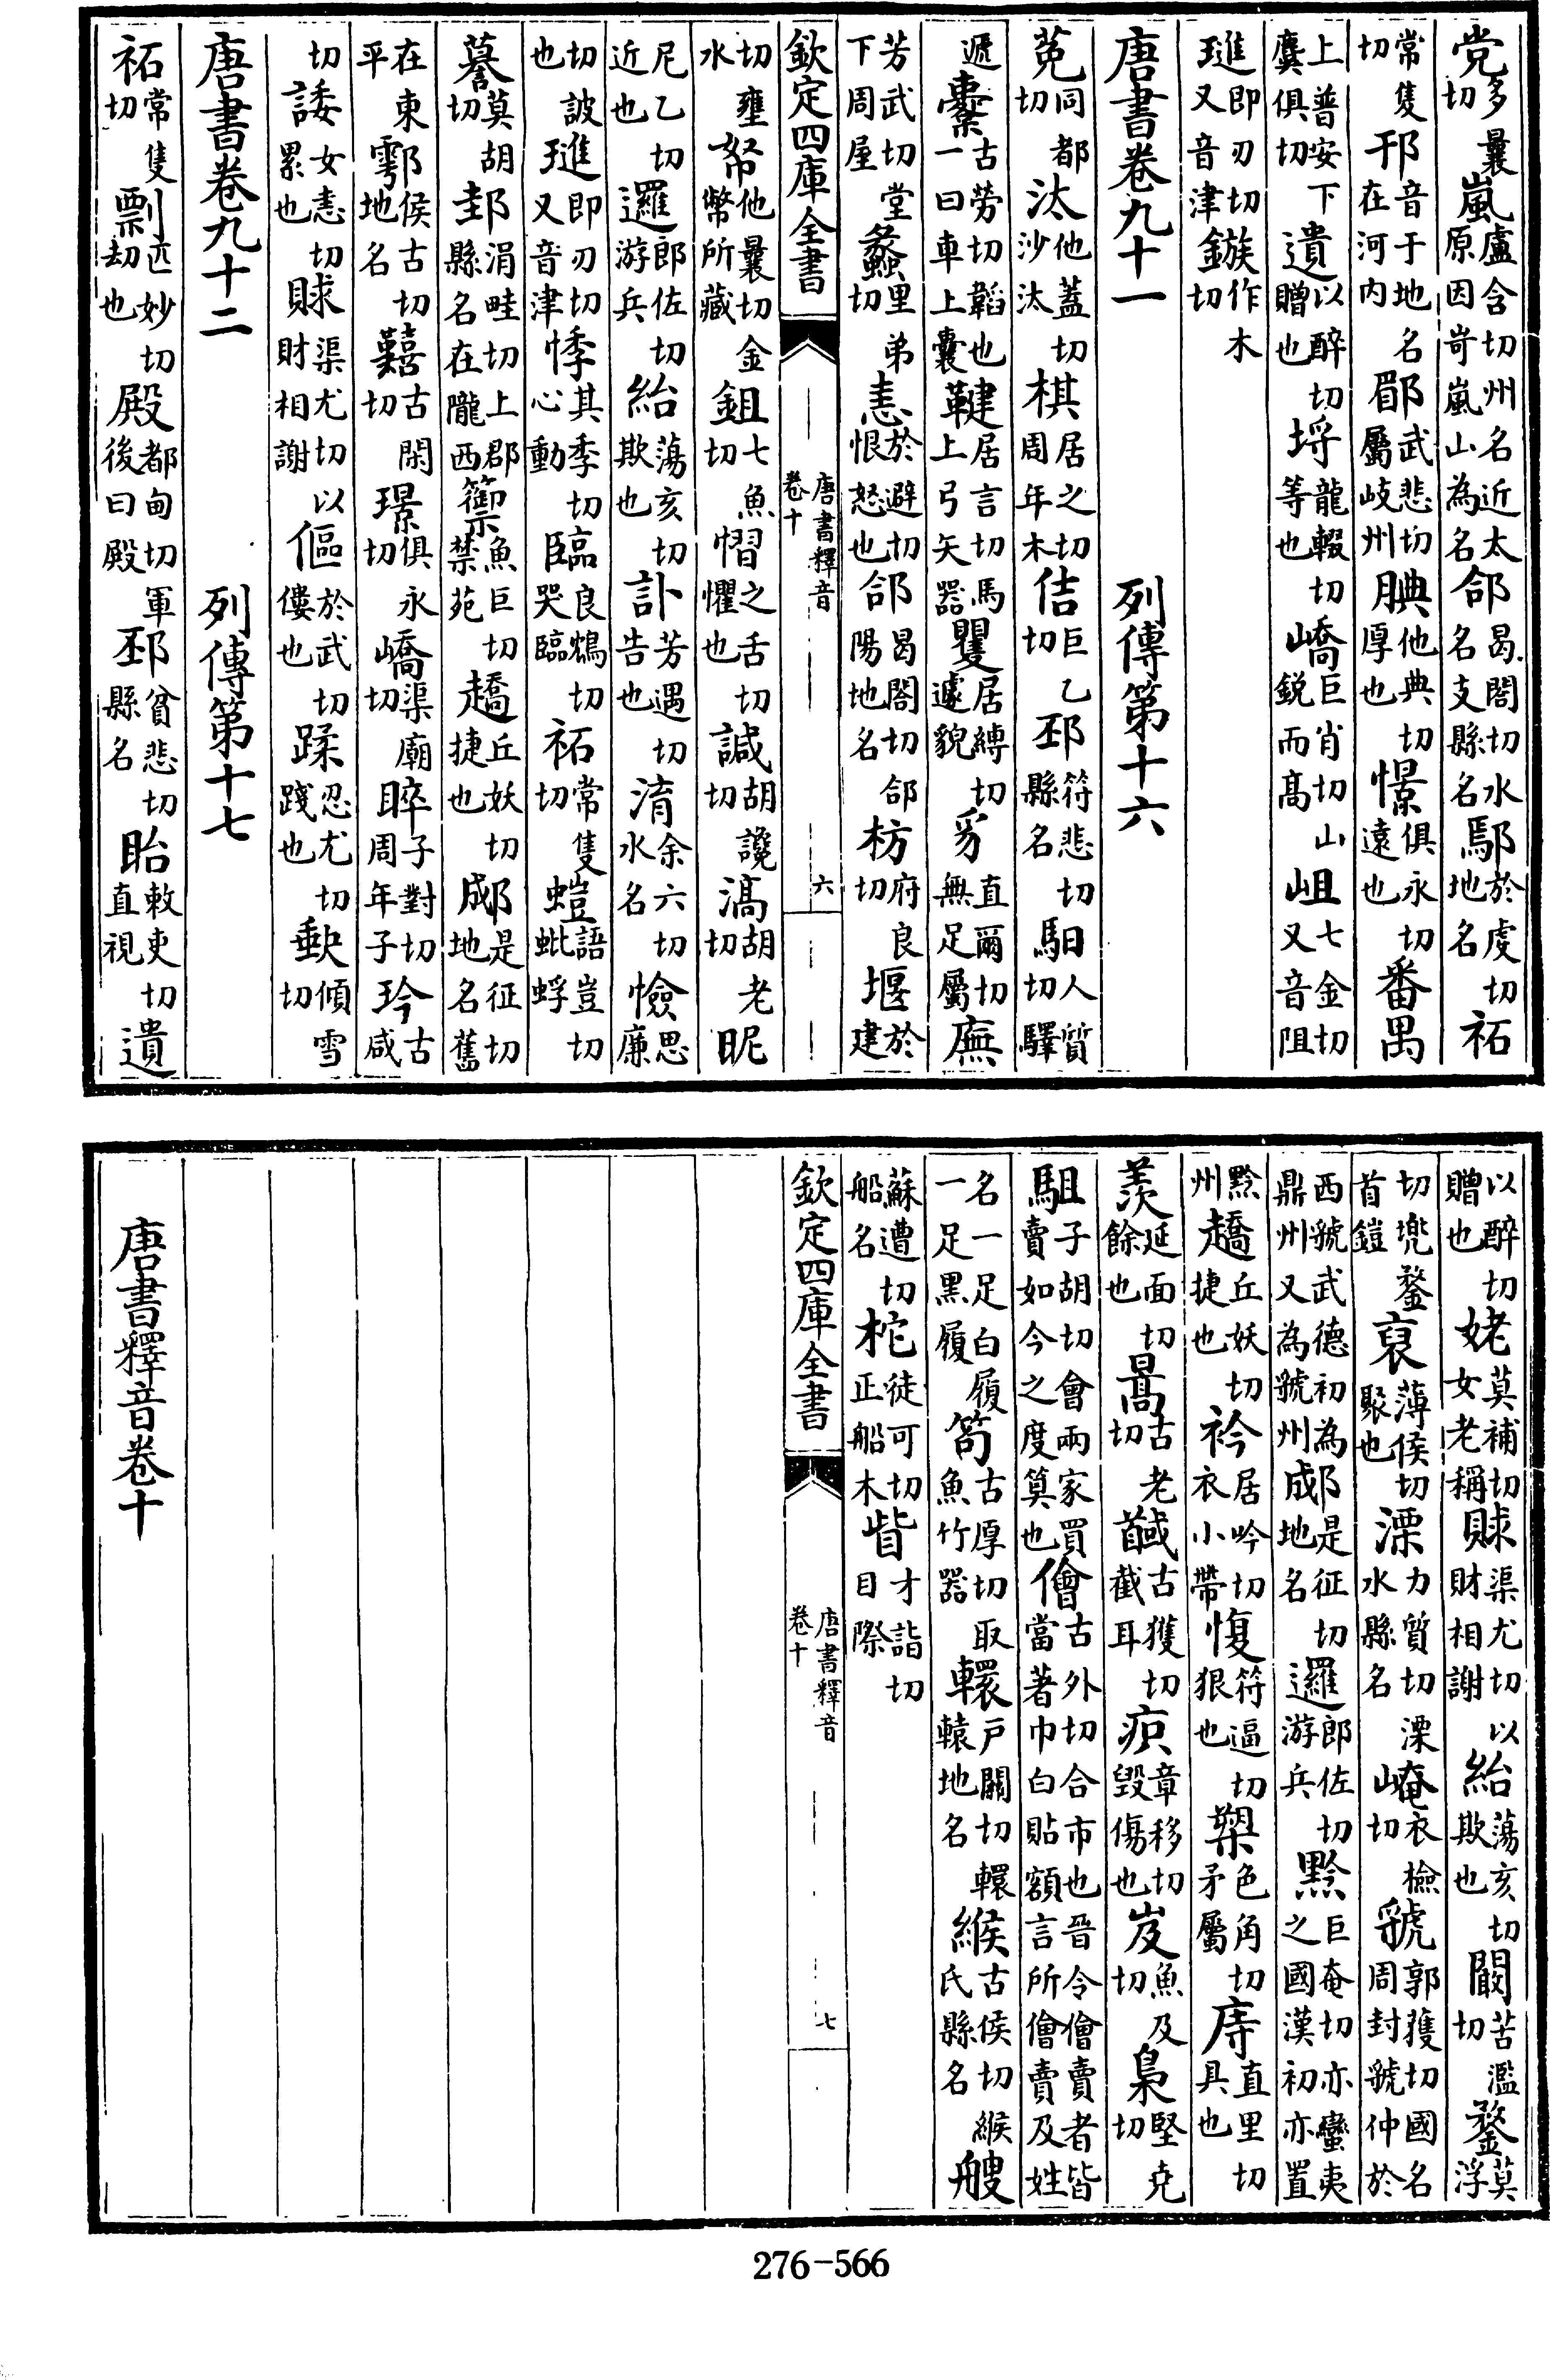 党多曩切嵐盧含切州名近太原因岢嵐山為名郃曷閤切水名支縣名鄢於虔切地名祏
常隻切邘音于地名在河内郿武悲切屬岐州腆他典切厚也憬俱永切遠也番禺
上普安下麌俱切遺以醉切贈也埒龍輟切等也嶠巨肖切山鋭而高岨七金切又音阻
璡即刃切又音津鏃作木切
唐書卷九十一 列傳第十六
菟同都切汰他蓋切沙汰棋居之切周年木佶巨乙切邳符悲切縣名馹人質切驛
遞櫜古勞切韜也一曰車上囊鞬居言切馬上弓矢器矍居縛切遽貌豸直爾切無足屬廡
芳武切堂下周屋蠡里弟切恚於避切恨怒也郃曷閤切郃陽地名枋府良切堰於建
欽定四庫全書 唐書釋音 卷十 六
切壅水帑他曩切金幣所藏鉏七魚切慴之舌切懼也諴胡讒切滈胡老切昵
尼乙切近也邏郎佐切游兵紿蕩亥切欺也訃芳遇切告也淯余六切水名憸思廉
切詖也璡即刃切又音津悸其季切心動臨良鴆切哭臨祏常隻切螘語豈切蚍蜉
謩莫胡切邽涓畦切上郡縣名在隴西籞魚巨切禁苑趫丘妖切捷也郕是征切地名舊
在東平鄠侯古切地名囏古閑切璟俱永切嶠渠廟切晬子對切周年子玪古咸
切諉女恚切累也賕渠尤切以財相謝傴於武切僂也蹂忍尤切踐也缺傾雪切
唐書卷九十二 列傳第十七
祏常隻切剽匹妙切劫也殿都甸切軍後曰殿邳貧悲切縣名眙敕吏切直視遺
以醉切贈也姥莫補切女老稱賕渠尤切以財相謝紿蕩亥切欺也闞苦濫切鍪莫浮
切兜鍪首鎧裒薄侯切聚也溧力質切溧水縣名崦衣檢切虢郭獲切國名周封虢仲於
西虢武德初為鼎州又為虢州郕是征切地名邏郎佐切游兵黔巨奄切亦蠻夷之國漢初亦置
黔州趫丘妖切捷也衿居吟切衣小帶愎符逼切狠也槊色角切矛屬庤直里切具也
羨延面切餘也暠古老切馘古獲切截耳疻章移切毀傷也岌魚及切梟堅堯切
駔子胡切會兩家買賣如今之度筭也儈古外切合市也晉令儈賣者皆當著巾白貼額言所儈賣及姓
名一足白履一足黑履笱古厚切取魚竹器轘戶關切轘轅地名緱古侯切緱氏縣名艘
蘇遭切船名柁徒可切正船木眥才詣切目際
欽定四庫全書 唐書釋音 卷十 七
唐書釋音卷十
276-566